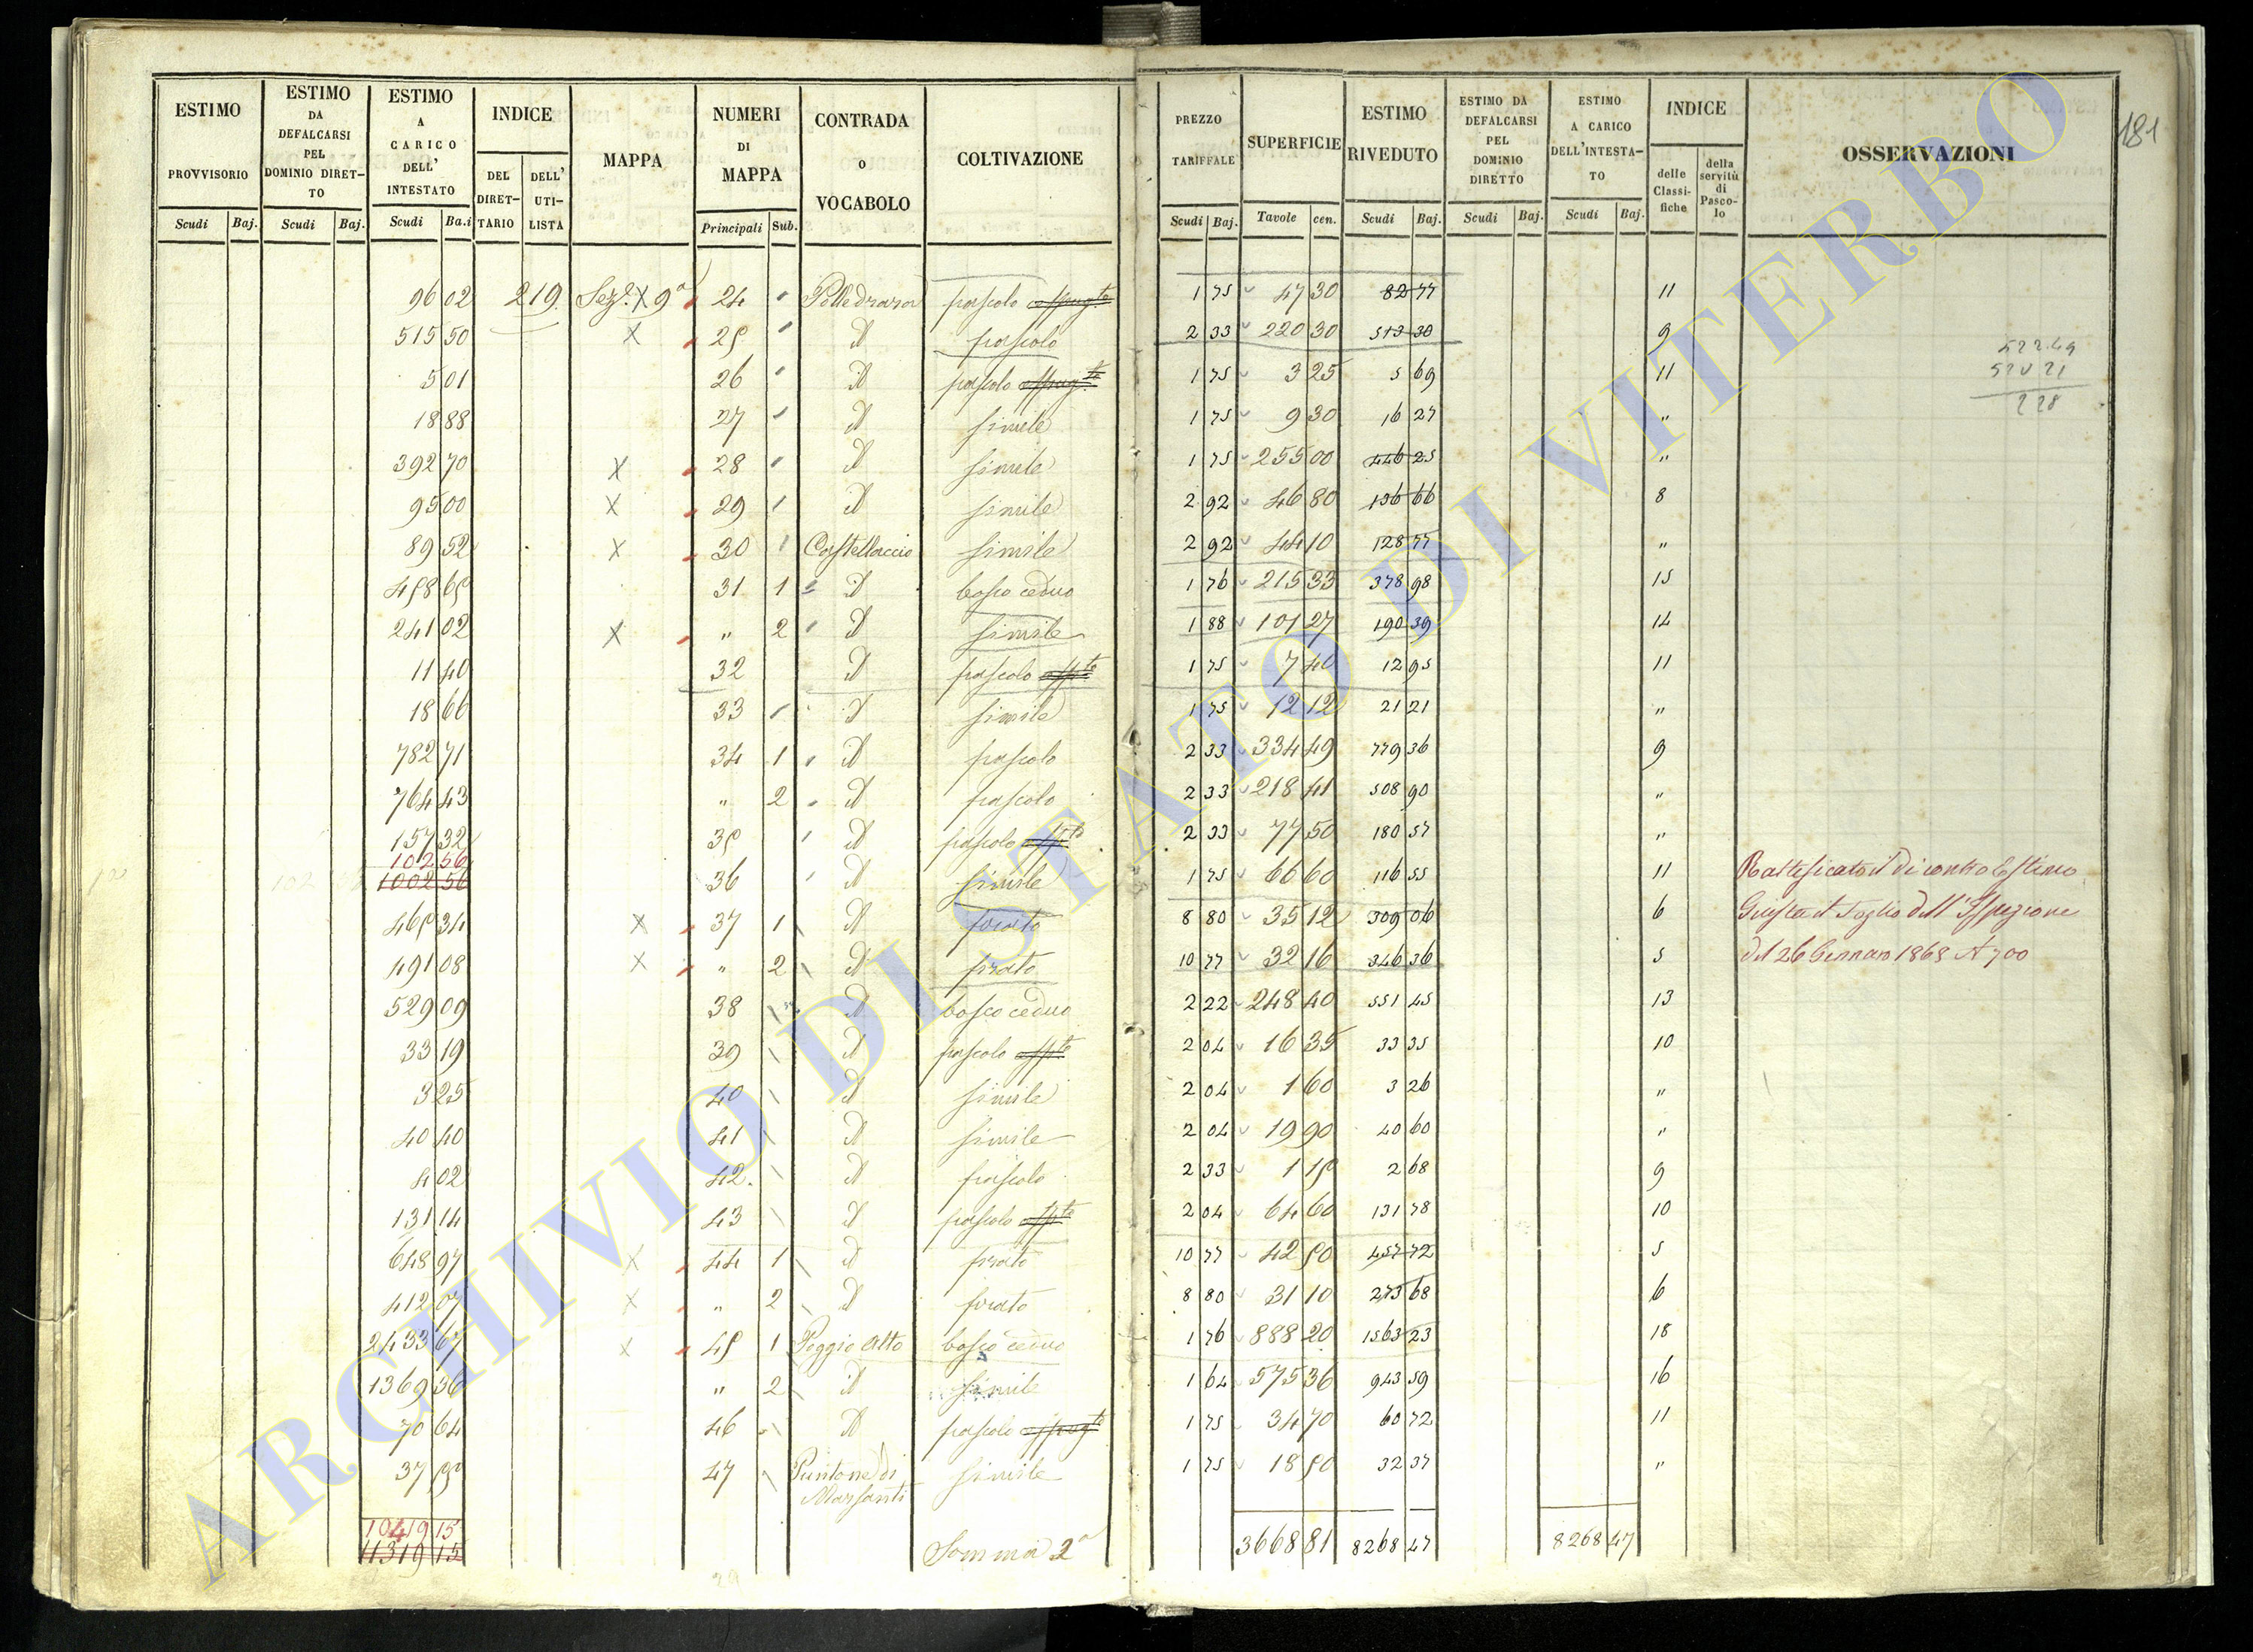 ESTIMO PROVVISORIO Scudi Baj.
ESTIMO DA DEFALCARSI PEL DOMINIO DIRET-TO Scudi Baj.
ESTIMO A CARICO DELL' INTESTATO Scudi Ba.i
INDICE DEL DIRET-TARIO DELL' UTI-LISTA
MAPPA
NUMERI DI MAPPA Principali Sub.
CONTRADA o VOCABOLO
COLTIVAZIONE
PREZZO TARIFFALE Scudi Baj.
SUPERFICIE Tavole cen.
ESTIMO RIVEDUTO Scudi Baj.
ESTIMO DA DEFALCARSI PEL DOMINIO DIRETTO Scudi Baj.
ESTIMO A CARICO DELL'INTESTA-TO Scudi Baj.
INDICE delle Classi-fiche della servitù di Pasco-lo
OSSERVAZIONI
181
96 02 219 Sez.e X 9a 24 Polledrara pascolo 1 75 47 30 82 77 11
515 50 X 25 d pascolo 2 33 220 30 513 30 9
5 01 26 d pascolo 1 75 3 25 5 69 11
18 88 27 d simile 1 75 9 30 16 27 "
392 70 X 28 d simile 1 75 255 00 446 25 "
95 00 X 29 d simile 2 92 46 80 136 66 8
89 52 X 30 Castellaccio simile 2 92 44 10 128 77 "
458 65 31 1 d bosco ceduo 1 76 215 33 378 98 15
241 02 X " 2 d simile 1 88 101 27 190 39 14
11 40 32 d pascolo 1 75 7 40 12 95 11
18 66 33 d simile 1 75 12 12 21 21 "
782 71 34 1 d pascolo 2 33 334 49 779 36 9
764 43 " 2 d pascolo 2 33 218 41 508 90 "
157 32 35 d pascolo 2 33 77 50 180 57 "
102 56
1002 56 36 d simile 1 75 66 60 116 55 11
465 34 X 37 1 d prato 8 80 35 12 309 06 6
491 08 X " 2 d prato 10 77 32 16 346 36 5
529 09 38 d bosco ceduo 2 22 248 40 551 45 13
33 19 39 d pascolo 2 04 16 35 33 35 10
3 25 40 d simile 2 04 1 60 3 26 "
40 40 41 d simile 2 04 19 90 40 60 "
4 02 42 d pascolo 2 33 1 15 2 68 9
131 14 43 d pascolo 2 04 64 60 131 78 10
648 97 X 44 1 d prato 10 77 42 50 457 72 5
412 07 X " 2 d prato 8 80 31 10 273 68 6
2433 67 X 45 1 Poggio alto bosco ceduo 1 76 888 20 1563 23 18
1369 36 " 2 d simile 1 64 575 36 943 59 16
70 64 46 d pascolo 1 75 34 70 60 72 11
37 50 47 Puntone di simile 1 75 18 50 32 37 "
10419 15
11319 15 Somma 2a 3668 81 8268 47 8268 47
Rattificato il di contro Estimo
Giusta il Foglio dell'Ispezione
del 26 Gennaro 1868 N 700
ARCHIVIO DI STATO DI VITERBO